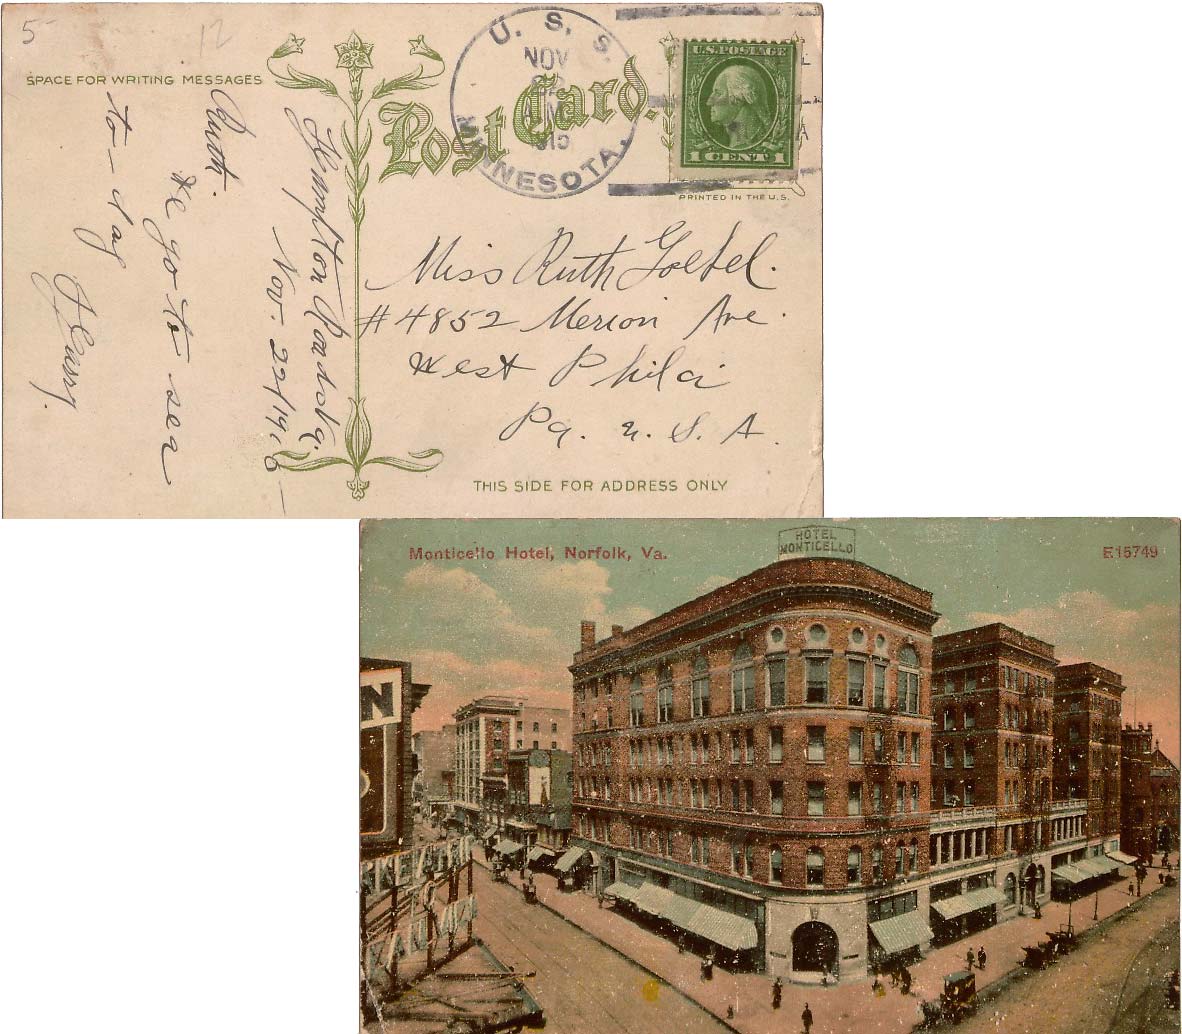 5
12
SPACE FOR WRITING MESSAGES
Post Card.
U. S. S.
NOV
22
MINNESOTA.
U.S. POSTAGE
1 CENT 1
PRINTED IN THE U.S.
Hampton Roads Va.
Nov. 22/1916
Ruth.
We go to sea
to-day
Miss Ruth Goebel.
#4852 Merion Ave.
West Phila
Pa. U. S. A.
THIS SIDE FOR ADDRESS ONLY
Monticello Hotel, Norfolk, Va.
E15749
HOTEL
MONTICELLO
N